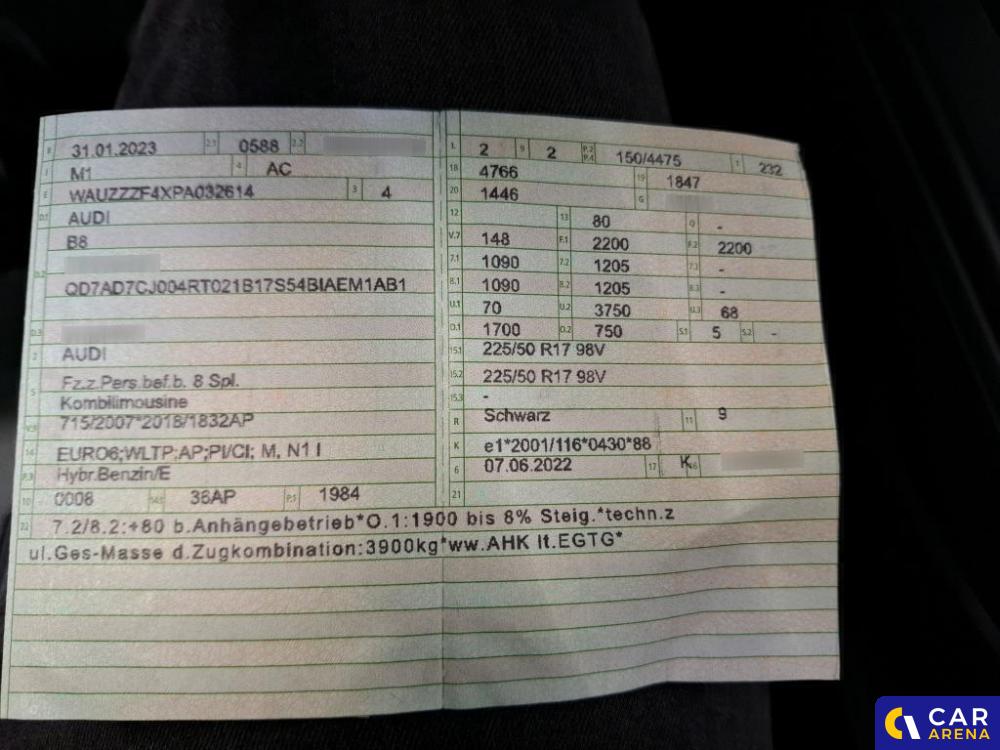 B 31.01.2023 2.1 0588 2.2
J M1 4 AC
E WAUZZZF4XPA032614 3 4
D.1 AUDI
B8
D.2
QD7AD7CJ004RT021B17S54BIAEM1AB1
D.3
2 AUDI
5 Fz.z.Pers.bef.b. 8 Spl.
Kombilimousine
V.9 715/2007*2018/1832AP
14 EURO6;WLTP;AP;PI/CI; M, N1 I
P.3 Hybr.Benzin/E
10 0008 14.1 36AP P.1 1984
L 2 9 2 P.2 P.4 150/4475 T 232
18 4766 19 1847
20 1446 G
12 13 80 Q -
V.7 148 F.1 2200 F.2 2200
7.1 1090 7.2 1205 7.3 -
8.1 1090 8.2 1205 8.3 -
U.1 70 U.2 3750 U.3 68
O.1 1700 O.2 750 S.1 5 S.2 -
15.1 225/50 R17 98V
15.2 225/50 R17 98V
15.3 -
R Schwarz 11 9
K e1*2001/116*0430*88
6 07.06.2022 17 K 16
21
22 7.2/8.2:+80 b.Anhängebetrieb*O.1:1900 bis 8% Steig.*techn.z
ul.Ges-Masse d.Zugkombination:3900kg*ww.AHK lt.EGTG*
CAR
ARENA